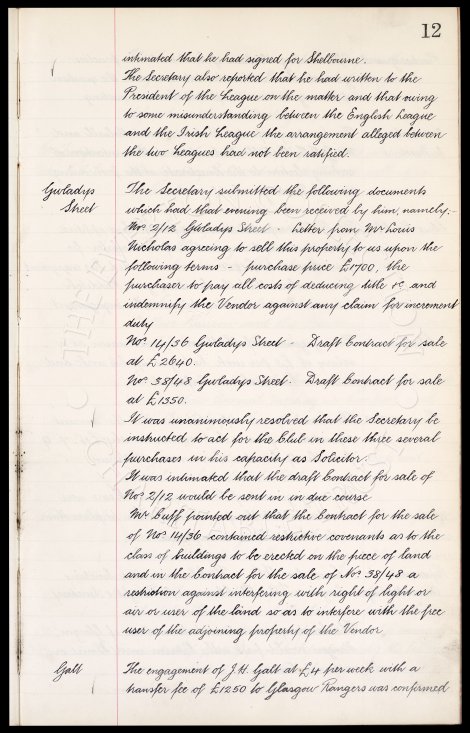 12
intimated that he had signed for Shelbourne.
The Secretary also reported that he had written to the
President of the League on the matter and that owing
to some misunderstanding between the English League
and the Irish League the arrangement alleged between
the two Leagues had not been ratified.
Gwladys
Street
The Secretary submitted the following documents
which had that evening been received by him, namely:-
Nos 2/12 Gwladys Street - Letter from Mr Louis
Nicholas agreeing to sell this property to us upon the
following terms - purchase price £1700, the
purchaser to pay all costs of deducing title &c, and
indemnify the Vendor against any claim for increment
duty
Nos 14/36 Gwladys Street - Draft Contract for sale
at £2640.
Nos 38/48 Gwladys Street. Draft Contract for sale
at £1350.
It was unanimously resolved that the Secretary be
instructed to act for the Club in these three several
purchases in his capacity as Solicitor.
It was intimated that the draft Contract for sale of
Nos 2/12 would be sent in in due course
Mr Cuff pointed out that the Contract for the sale
of Nos 14/36 contained restrictive covenants as to the
class of buildings to be erected on the piece of land
and in the Contract for the sale of Nos 38/48 a
restriction against interfering with right of light or
air or user of the land so as to interfere with the free
user of the adjoining property of the Vendor.
Galt
The engagement of J.H. Galt at £4 per week with a
transfer fee of £1250 to Glasgow Rangers was confirmed